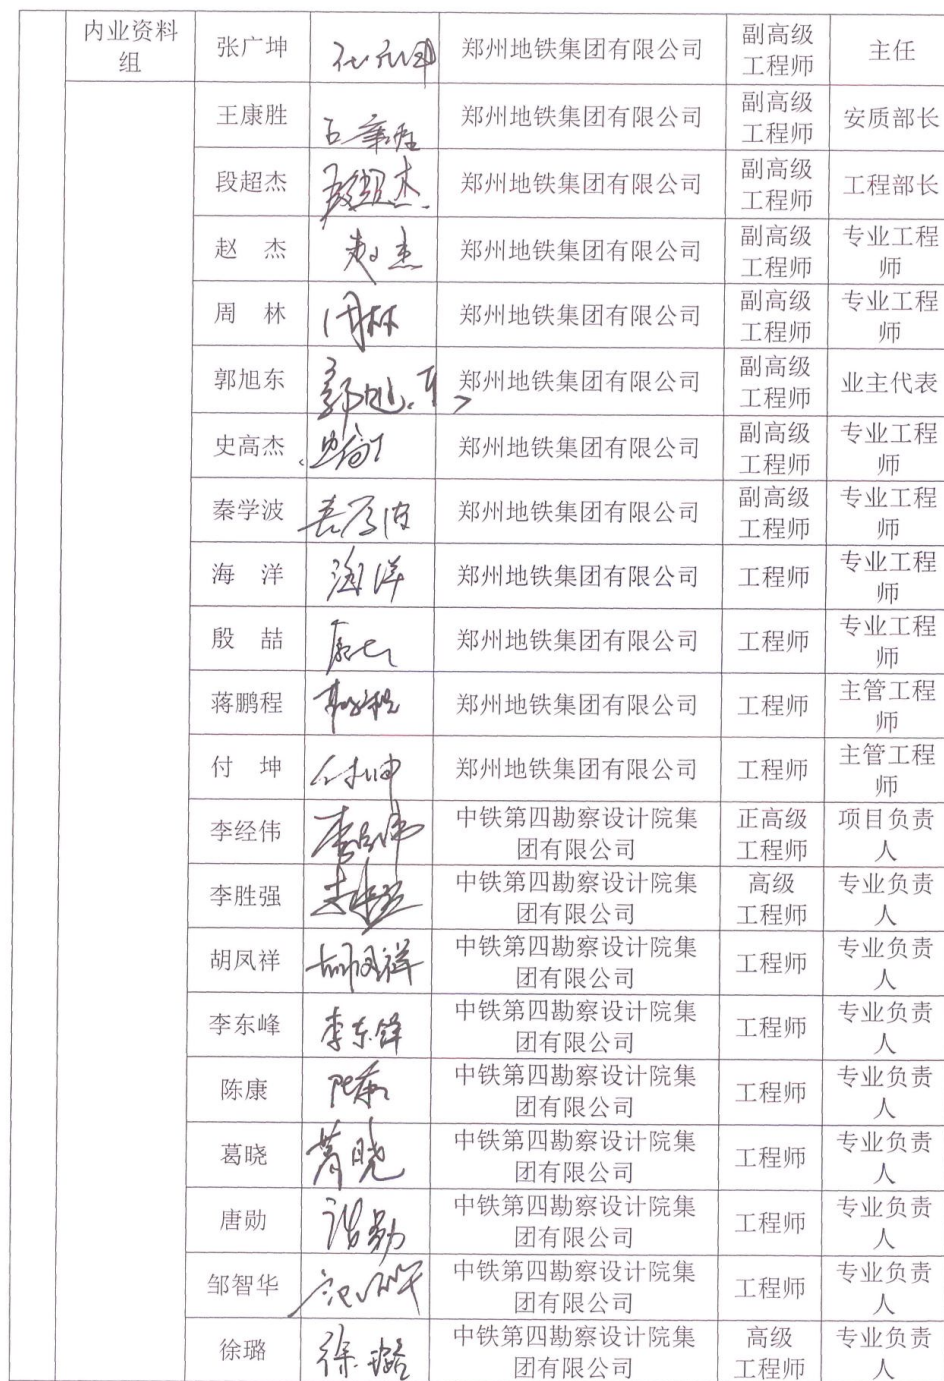 内业资料
组
张广坤
郑州地铁集团有限公司
副高级
工程师
主任
王康胜
郑州地铁集团有限公司
副高级
工程师
安质部长
段超杰
段超杰
郑州地铁集团有限公司
副高级
工程师
工程部长
赵 杰
赵杰
郑州地铁集团有限公司
副高级
工程师
专业工程
师
周 林
周林
郑州地铁集团有限公司
副高级
工程师
专业工程
师
郭旭东
郭旭东
郑州地铁集团有限公司
副高级
工程师
业主代表
史高杰
郑州地铁集团有限公司
副高级
工程师
专业工程
师
秦学波
郑州地铁集团有限公司
副高级
工程师
专业工程
师
海 洋
海洋
郑州地铁集团有限公司
工程师
专业工程
师
殷 喆
郑州地铁集团有限公司
工程师
专业工程
师
蒋鹏程
郑州地铁集团有限公司
工程师
主管工程
师
付 坤
付坤
郑州地铁集团有限公司
工程师
主管工程
师
李经伟
李经伟
中铁第四勘察设计院集
团有限公司
正高级
工程师
项目负责
人
李胜强
中铁第四勘察设计院集
团有限公司
高级
工程师
专业负责
人
胡凤祥
胡凤祥
中铁第四勘察设计院集
团有限公司
工程师
专业负责
人
李东峰
李东锋
中铁第四勘察设计院集
团有限公司
工程师
专业负责
人
陈康
陈康
中铁第四勘察设计院集
团有限公司
工程师
专业负责
人
葛晓
葛晓
中铁第四勘察设计院集
团有限公司
工程师
专业负责
人
唐勋
唐勋
中铁第四勘察设计院集
团有限公司
工程师
专业负责
人
邹智华
中铁第四勘察设计院集
团有限公司
工程师
专业负责
人
徐璐
徐璐
中铁第四勘察设计院集
团有限公司
高级
工程师
专业负责
人